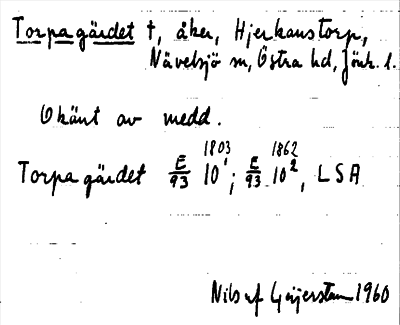 Torpagärdet †, åker, Hjerkanstorp,
Nävelsjö sn, Östra hd, Jönk. l.
Okänt av medd.
Torpagärdet E/93 1803 10¹; E/93 1862 10², LSA
Nils af Geijerstam 1960